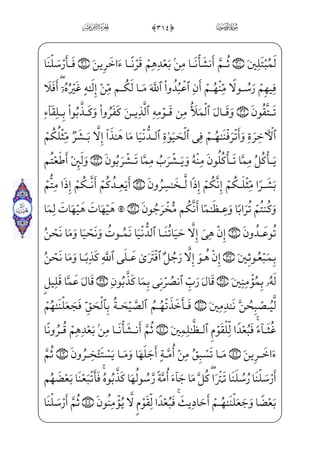 ﴿٣١٤﴾
لَمُبْتَلِينَ ۝ ثُمَّ أَنشَأْنَا مِنۢ بَعْدِهِمْ قَرْنًا ءَاخَرِينَ ۝ فَأَرْسَلْنَا
فِيهِمْ رَسُولًا مِّنْهُمْ أَنِ ٱعْبُدُوا۟ ٱللَّهَ مَا لَكُم مِّنْ إِلَـٰهٍ غَيْرُهُۥٓ ۖ أَفَلَا
تَتَّقُونَ ۝ وَقَالَ ٱلْمَلَأُ مِن قَوْمِهِ ٱلَّذِينَ كَفَرُوا۟ وَكَذَّبُوا۟ بِلِقَآءِ
ٱلْـَٔاخِرَةِ وَأَتْرَفْنَـٰهُمْ فِى ٱلْحَيَوٰةِ ٱلدُّنْيَا مَا هَـٰذَآ إِلَّا بَشَرٌ مِّثْلُكُمْ
يَأْكُلُ مِمَّا تَأْكُلُونَ مِنْهُ وَيَشْرَبُ مِمَّا تَشْرَبُونَ ۝ وَلَئِنْ أَطَعْتُم
بَشَرًا مِّثْلَكُمْ إِنَّكُمْ إِذًا لَّخَـٰسِرُونَ ۝ أَيَعِدُكُمْ أَنَّكُمْ إِذَا مِتُّمْ
وَكُنتُمْ تُرَابًا وَعِظَـٰمًا أَنَّكُم مُّخْرَجُونَ ۝ ۞ هَيْهَاتَ هَيْهَاتَ لِمَا
تُوعَدُونَ ۝ إِنْ هِىَ إِلَّا حَيَاتُنَا ٱلدُّنْيَا نَمُوتُ وَنَحْيَا وَمَا نَحْنُ
بِمَبْعُوثِينَ ۝ إِنْ هُوَ إِلَّا رَجُلٌ ٱفْتَرَىٰ عَلَى ٱللَّهِ كَذِبًا وَمَا نَحْنُ
لَهُۥ بِمُؤْمِنِينَ ۝ قَالَ رَبِّ ٱنصُرْنِى بِمَا كَذَّبُونِ ۝ قَالَ عَمَّا قَلِيلٍ
لَّيُصْبِحُنَّ نَـٰدِمِينَ ۝ فَأَخَذَتْهُمُ ٱلصَّيْحَةُ بِٱلْحَقِّ فَجَعَلْنَـٰهُمْ
غُثَآءً ۚ فَبُعْدًا لِّلْقَوْمِ ٱلظَّـٰلِمِينَ ۝ ثُمَّ أَنشَأْنَا مِنۢ بَعْدِهِمْ قُرُونًا
ءَاخَرِينَ ۝ مَا تَسْبِقُ مِنْ أُمَّةٍ أَجَلَهَا وَمَا يَسْتَـْٔخِرُونَ ۝ ثُمَّ
أَرْسَلْنَا رُسُلَنَا تَتْرَا ۖ كُلَّ مَا جَآءَ أُمَّةً رَّسُولُهَا كَذَّبُوهُ ۚ فَأَتْبَعْنَا بَعْضَهُم
بَعْضًا وَجَعَلْنَـٰهُمْ أَحَادِيثَ ۚ فَبُعْدًا لِّقَوْمٍ لَّا يُؤْمِنُونَ ۝ ثُمَّ أَرْسَلْنَا